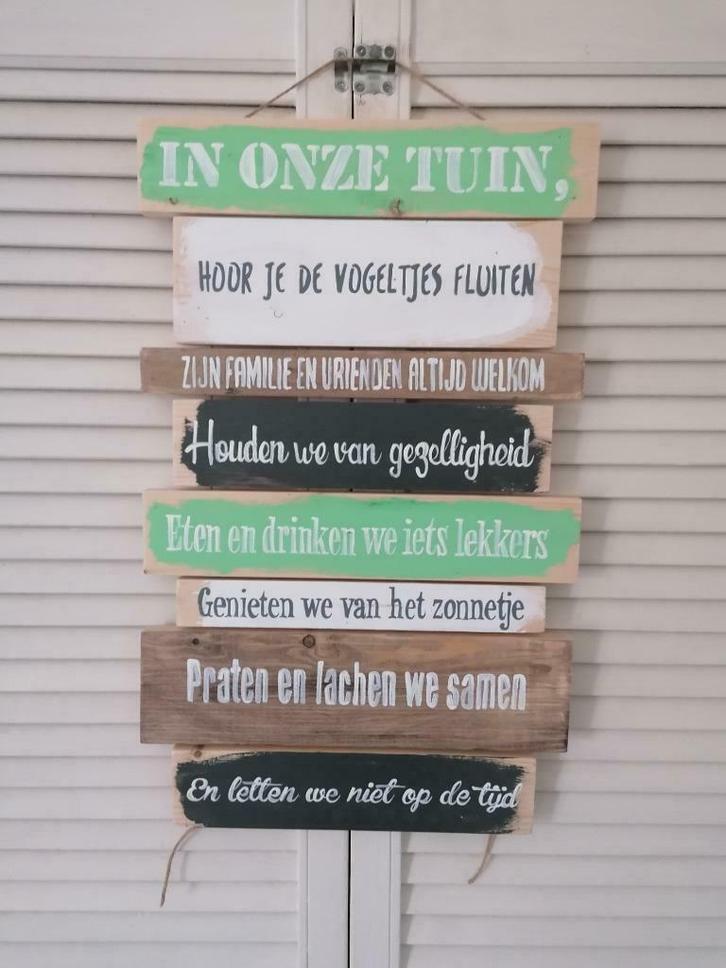 IN ONZE TUIN,
HOOR JE DE VOGELTJES FLUITEN
ZIJN FAMILIE EN VRIENDEN ALTIJD WELKOM
Houden we van gezelligheid
Eten en drinken we iets lekkers
Genieten we van het zonnetje
Praten en lachen we samen
En letten we niet op de tijd